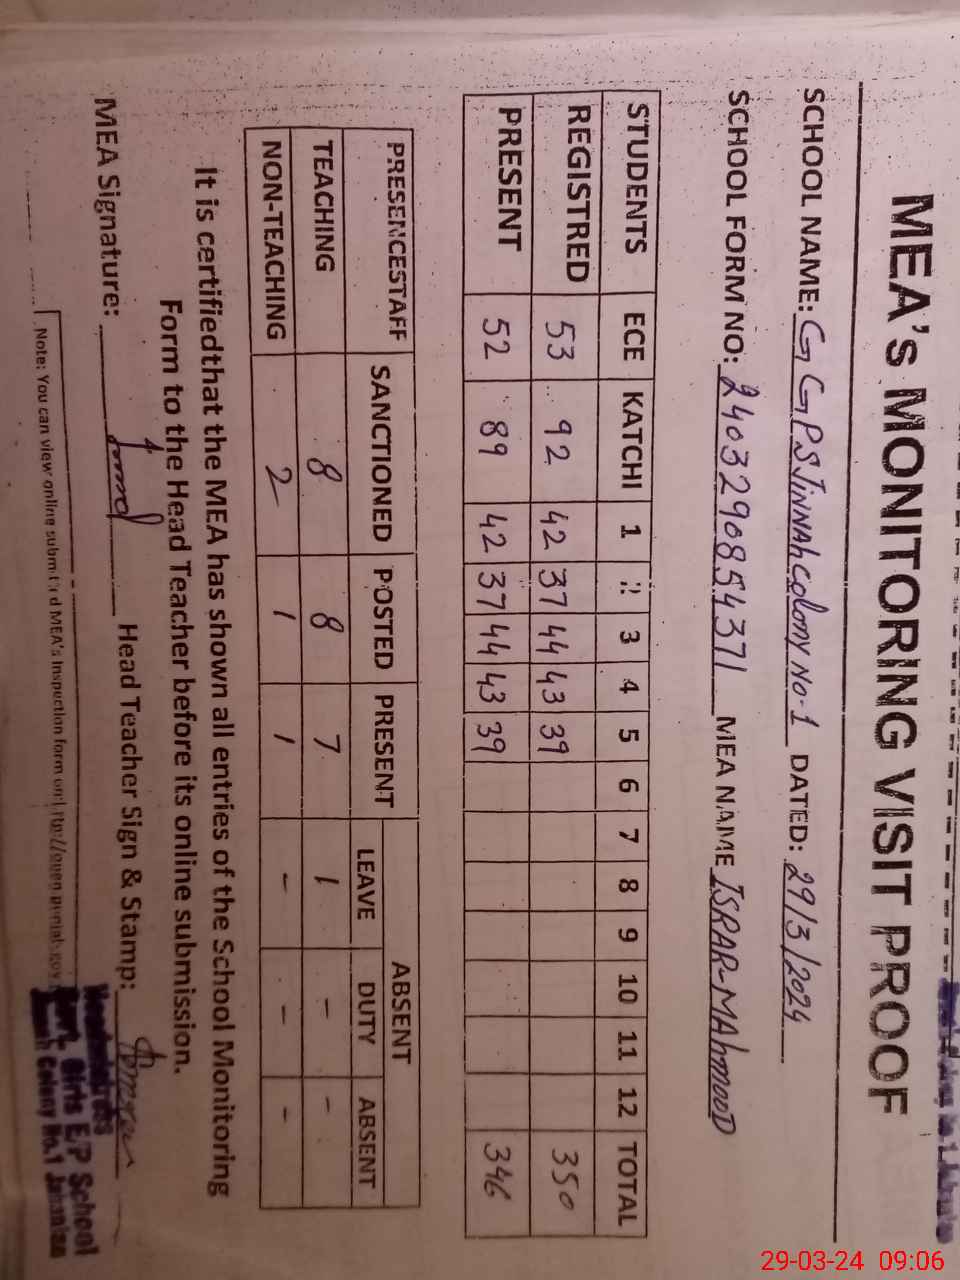 MEA's MONITORING VISIT PROOF
SCHOOL NAME: GGPS Jinnah colony No.1 DATED: 29/3/2024
SCHOOL FORM NO: 2403290854371 MEA NAME ISRAR-MAhmooD
STUDENTS ECE KATCHI 1 2 3 4 5 6 7 8 9 10 11 12 TOTAL
REGISTRED 53 92 42 37 44 43 39 350
PRESENT 52 89 42 37 44 43 39 346
PRESENCESTAFF SANCTIONED POSTED PRESENT ABSENT
LEAVE DUTY ABSENT
TEACHING 8 8 7 1 - -
NON-TEACHING 2 1 1 - - -
It is certifiedthat the MEA has shown all entries of the School Monitoring
Form to the Head Teacher before its online submission.
MEA Signature: Head Teacher Sign & Stamp:
Headmistress
Govt. Girls E/P School
Jinnah Colony No.1 Jahanian
Note: You can view online submitted MEA's Inspection form on
29-03-24 09:06